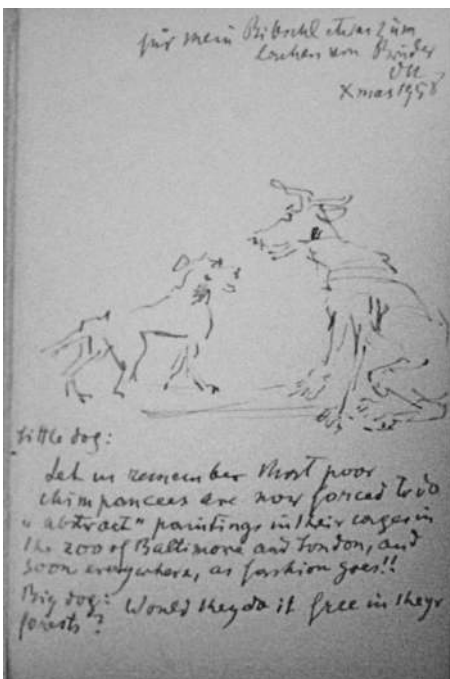 für mein Bibschl etwas zum
lachen von Bruder
Xmas 1958
little dog:
Let us remember that poor
chimpancees are now forced to do
"abstract" paintings in their cages in
the zoo of Baltimore and London, and
soon everywhere, as fashion goes!!
Big dog: Would they do it free in theyr
forests?